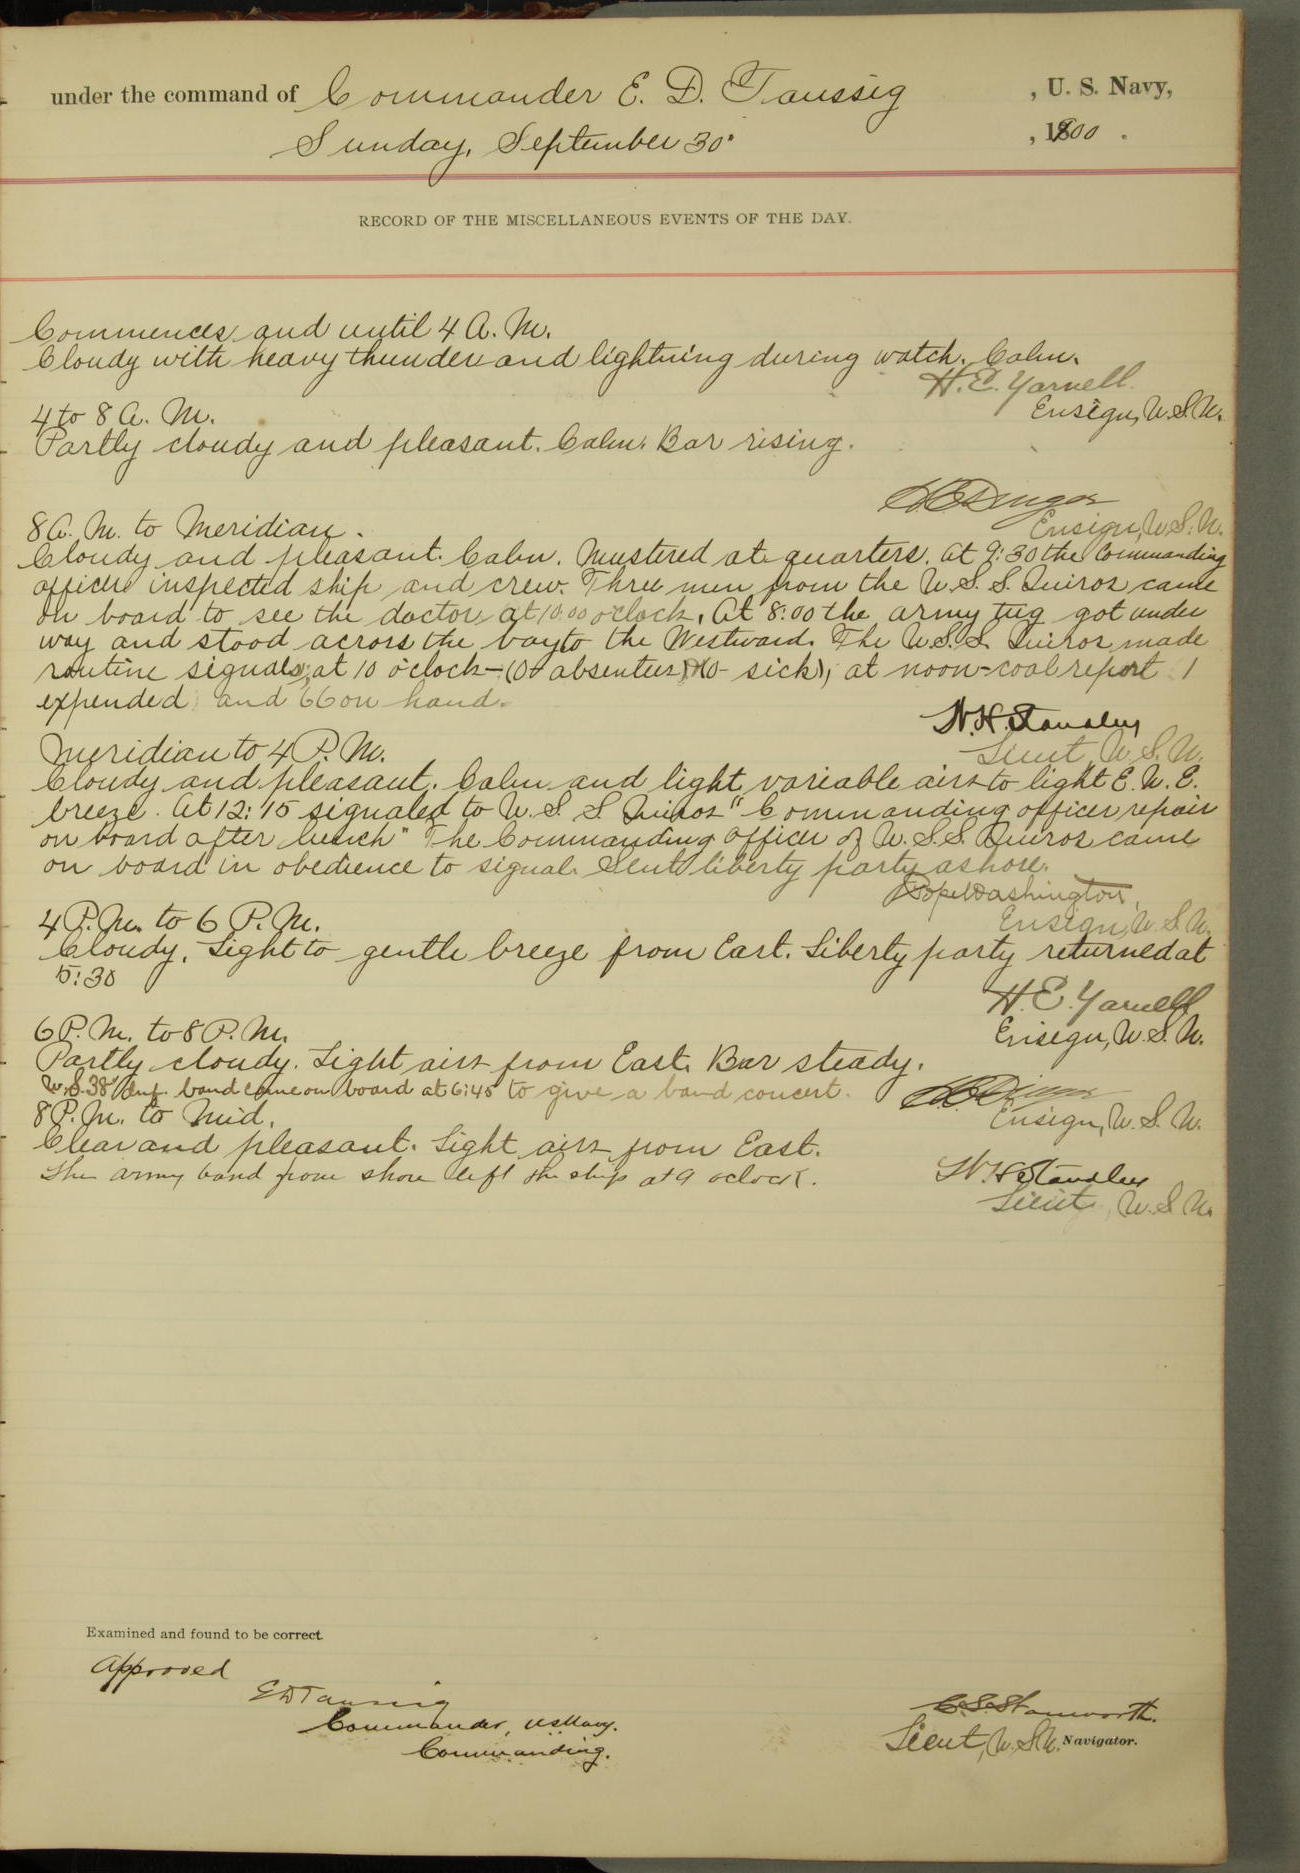 under the command of Commander E. D. Taussig , U. S. Navy,
Sunday, September 30 , 1900 .
RECORD OF THE MISCELLANEOUS EVENTS OF THE DAY.
Commences and until 4 A. M.
Cloudy with heavy thunder and lightning during watch. Calm.
H. E. Yarnell.
Ensign, U.S.N.
4 to 8 A. M.
Partly cloudy and pleasant. Calm. Bar rising.
Ensign, U.S.N.
8 A. M. to Meridian.
Cloudy and pleasant. Calm. Mustered at quarters. At 9:30 the Commanding
officer inspected ship and crew. Three men from the U. S. S. Quiros came
on board to see the doctor at 10:00 o'clock. At 8:00 the army tug got under
way and stood across the bay to the Westward. The U.S.S. Quiros made
routine signals, at 10 o'clock - (0 - absentees) (0 - sick), at noon - coal report 1
expended and 66 on hand.
W. H. Standley
Lieut, U.S.N.
Meridian to 4 P. M.
Cloudy and pleasant. Calm and light variable airs to light E. N. E.
breeze. At 12:15 signaled to U. S. S. Quiros "Commanding officer repair
on board after lunch" The Commanding Officer of U.S.S. Quiros came
on board in obedience to signal. Sent liberty party ashore.
Pope Washington,
Ensign, U.S.N.
4 P. M. to 6 P. M.
Cloudy. Light to gentle breeze from East. Liberty party returned at
5:30
H. E. Yarnell
Ensign, U. S. N.
6 P. M. to 8 P. M.
Partly cloudy. Light airs from East. Bar steady.
U.S. 38" Inf. band came on board at 6:45 to give a band concert.
Ensign, U. S. N.
8 P. M. to Mid.
Clear and pleasant. Light airs from East.
The army band from shore left the ship at 9 oclock.
W. H. Standley
Lieut, U. S. N.
Examined and found to be correct.
Approved
E D Taussig
Commander, U S Navy.
Commanding.
Lieut, U.S.N. Navigator.